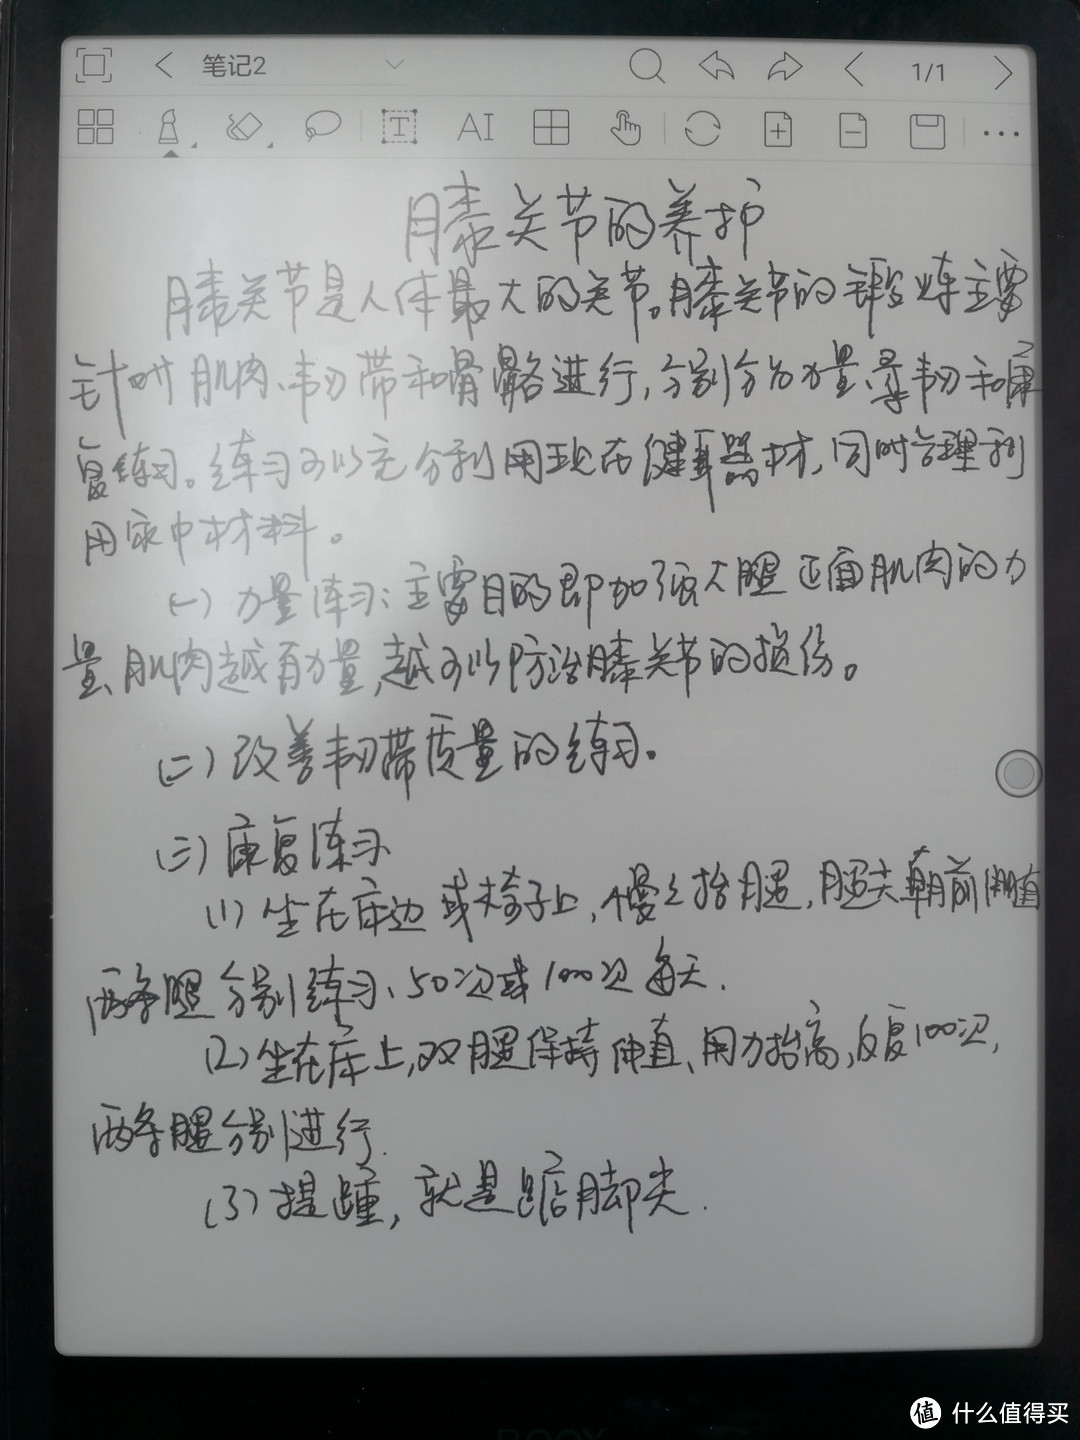 笔记2
1/1
AI
膝关节的养护
膝关节是人体最大的关节。膝关节的锻炼主要
针对肌肉、韧带和骨骼进行,分别分为力量、柔韧和康
复练习。练习可以充分利用现在健身器材,同时合理利
用家中材料。
(一)力量练习:主要目的即加强大腿正面肌肉的力
量、肌肉越有力量,越可以防治膝关节的损伤。
(二)改善韧带质量的练习。
(三)康复练习
(1)坐在床边或椅子上,慢之抬腿,腿去朝前伸直
两条腿分别练习、50次或100次每天.
(2)坐在床上,双腿保持伸直、用力抬高,反复100次,
两条腿分别进行.
(3)提踵,就是踮脚尖.
BOOX
值 什么值得买